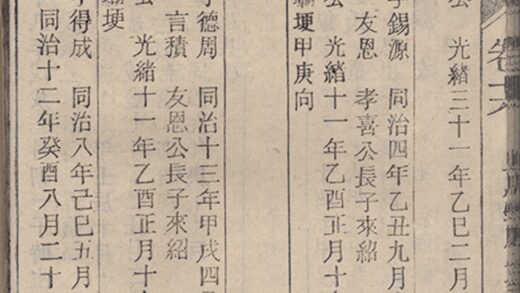 卷
光緒三十一年乙巳二月
錫源 同治四年乙丑九月
友恩 孝喜公長子來紹
公 光緒十一年乙酉正月十
埂甲庚向
德周 同治十三年甲戌四
言積 友恩公長子來紹
光緒十一年乙酉正月十
埂
得成 同治八年己巳五月
同治十二年癸酉八月二十